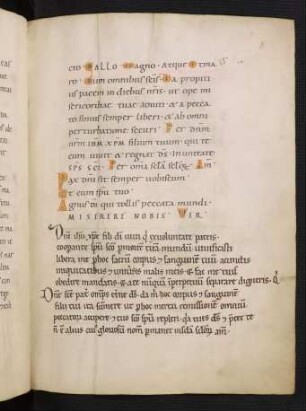 cto GALLO Magno. Atque Otma
ro. Cum omnibus scis. Da propitius
pacem in diebus nris. ut ope mi
sericordiae tuae adiuti. & a pecca
to simus semper liberi. & ab omni
perturbatione securi. Per dnm
nrm IHM XPM filium tuum. qui te
cum uiuit & regnat DS. in unitate
sps sci. Per oma scla sclor. AM
Pax dni sit semper uobiscum
Et cum spu tuo
Agnus di qui tollis peccata mundi.
MISERERE NOBIS. TER.
Dne ihu xpe fili di uiui qui ex uoluntate patris.
cooperante spu sco p mortem tua mundu uiuificasti
libera me p hoc sacru corpus & sanguine tuu a cunctis
iniquitatibus & uniuersis malis meis. & fac me tuis
obedire mandatis. & a te nunqua inperpetuu separari digneris.
Dne sce pat omps eterne ds. da m hoc corpus & sanguine
filii tui ita sumere ut p hoc merear remissione omniu
peccatoru accipere & tuo sco spu repleri. qa tu es ds & pter te
n e alius cui gloriosu nom pmanet in scla sclor. am.